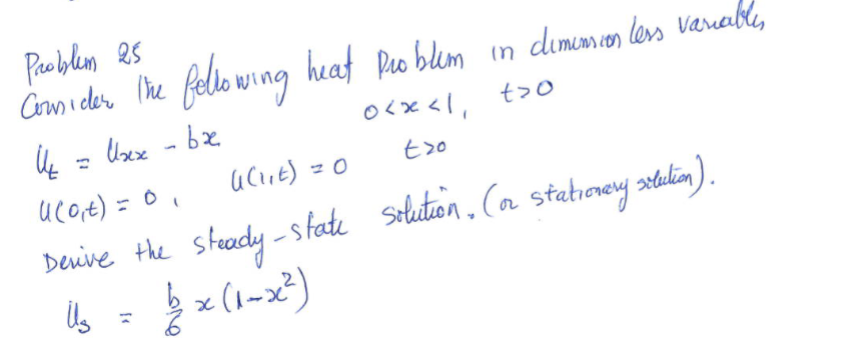 Problem 25
Consider the following heat problem in dimension less variables
u_t = u_xx - bx 0<x<1, t>0
u(0,t) = 0, u(1,t) = 0 t>0
Derive the steady-state solution. (or stationary solution).
u_s = b/6 x(1-x²)